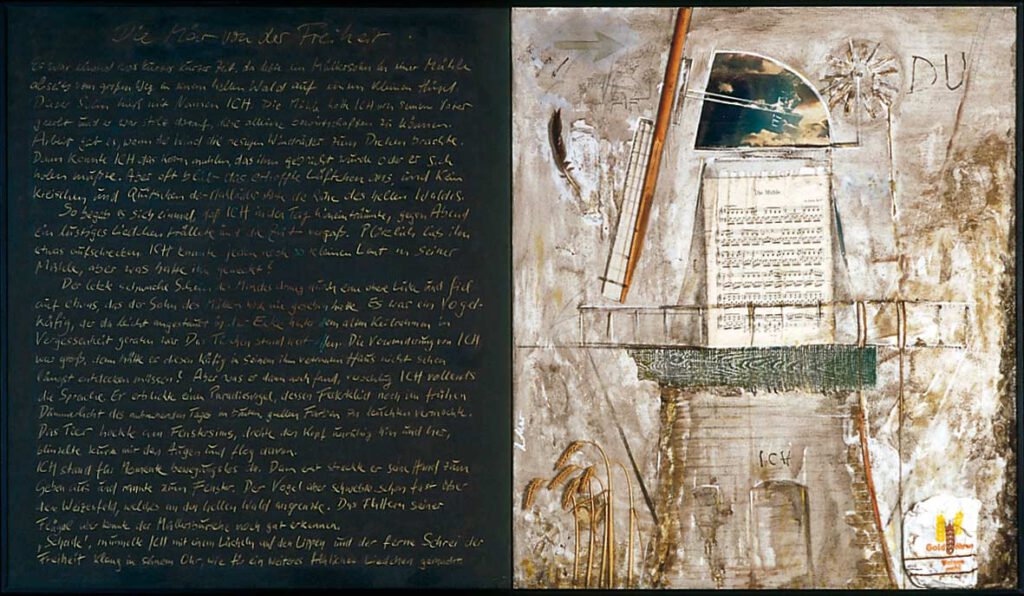 Die Mär von der Freiheit
Es war einmal vor kurzer kurzer Zeit, da lebte ein Müllerssohn in einer Mühle
abseits vom großen Weg in einem hellen Wald auf einem kleinen Hügel.
Dieser Sohn hieß mit Namen ICH. Die Mühle hatte ICH von seinem Vater
geerbt und er war stolz darauf, sie alleine bewirtschaften zu können.
Arbeit gab es, wenn der Wind die riesigen Windräder zum Drehen brachte.
Dann konnte ICH das Korn mahlen, das ihm gebracht wurde oder er sich
holen mußte. Aber oft blieb das erhoffte Lüftchen aus und kein
Kreischen und Quietschen der Mühlräder störte die Ruhe des hellen Waldes.
So begab es sich einmal, daß ICH in den Tag hinein träumte, gegen Abend
ein lustiges Liedchen trällerte und die Zeit vergaß. Plötzlich ließ ihn
etwas aufschrecken. ICH kannte jeden noch so kleinen Laut in seiner
Mühle, aber was hatte ihn geweckt?
Der letzte schwache Schein des Mondes drang durch eine obere Luke und fiel
auf etwas, das der Sohn des Müllers noch nie gesehen hatte. Es war ein Vogel-
käfig, der da leicht angestaubt in der Ecke hinter dem alten Keilriemen in
Vergessenheit geraten war. Das Türchen stand weit offen. Die Verwunderung von ICH
war groß, denn hätte er diesen Käfig in seinem ihm vertrauten Haus nicht schon
längst entdecken müssen? Aber was er dann noch fand, verschlug ICH vollends
die Sprache. Er erblickte einen Paradiesvogel, dessen Federkleid noch im frühen
Dämmerlicht des anbrechenden Tages in bunten grellen Farben zu leuchten vermochte.
Das Tier hockte am Fenstersims, drehte den Kopf unruhig hin und her,
blinzelte kurz mit den Augen und flog davon.
ICH stand für Momente bewegungslos da. Dann streckte er seine Hand zum
Geben aus und rannte zum Fenster. Der Vogel aber schwebte schon fast über
dem Weizenfeld, welches an den hellen Wald angrenzte. Das Flattern seiner
Flügel aber konnte der Müllersbursche noch gut erkennen.
„Schade!", murmelte ICH mit einem Lächeln auf den Lippen und der ferne Schrei der
Freiheit klang in seinem Ohr, wie für ein weiteres fröhliches Liedchen gemacht.
DU
Die Mühle
ICH
Gold